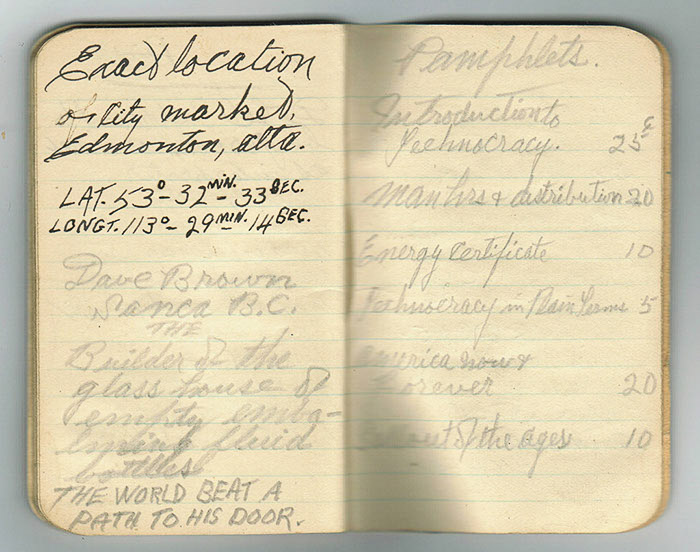 Exact location
of City market,
Edmonton, alta.
LAT. 53°- 32 MIN. - 33 SEC.
LONGT. 113°- 29 MIN. 14 SEC.
Dave Brown
Sanca B.C.
THE
Builder of the
glass house of
empty emba-
lming fluid
bottles
THE WORLD BEAT A
PATH TO HIS DOOR.
Pamphlets.
Introduction to
Technocracy. 25¢
Man hrs & distribution 20
Energy Certificate 10
Technocracy in Plain Terms 5
America now &
Forever 20
of the ages 10